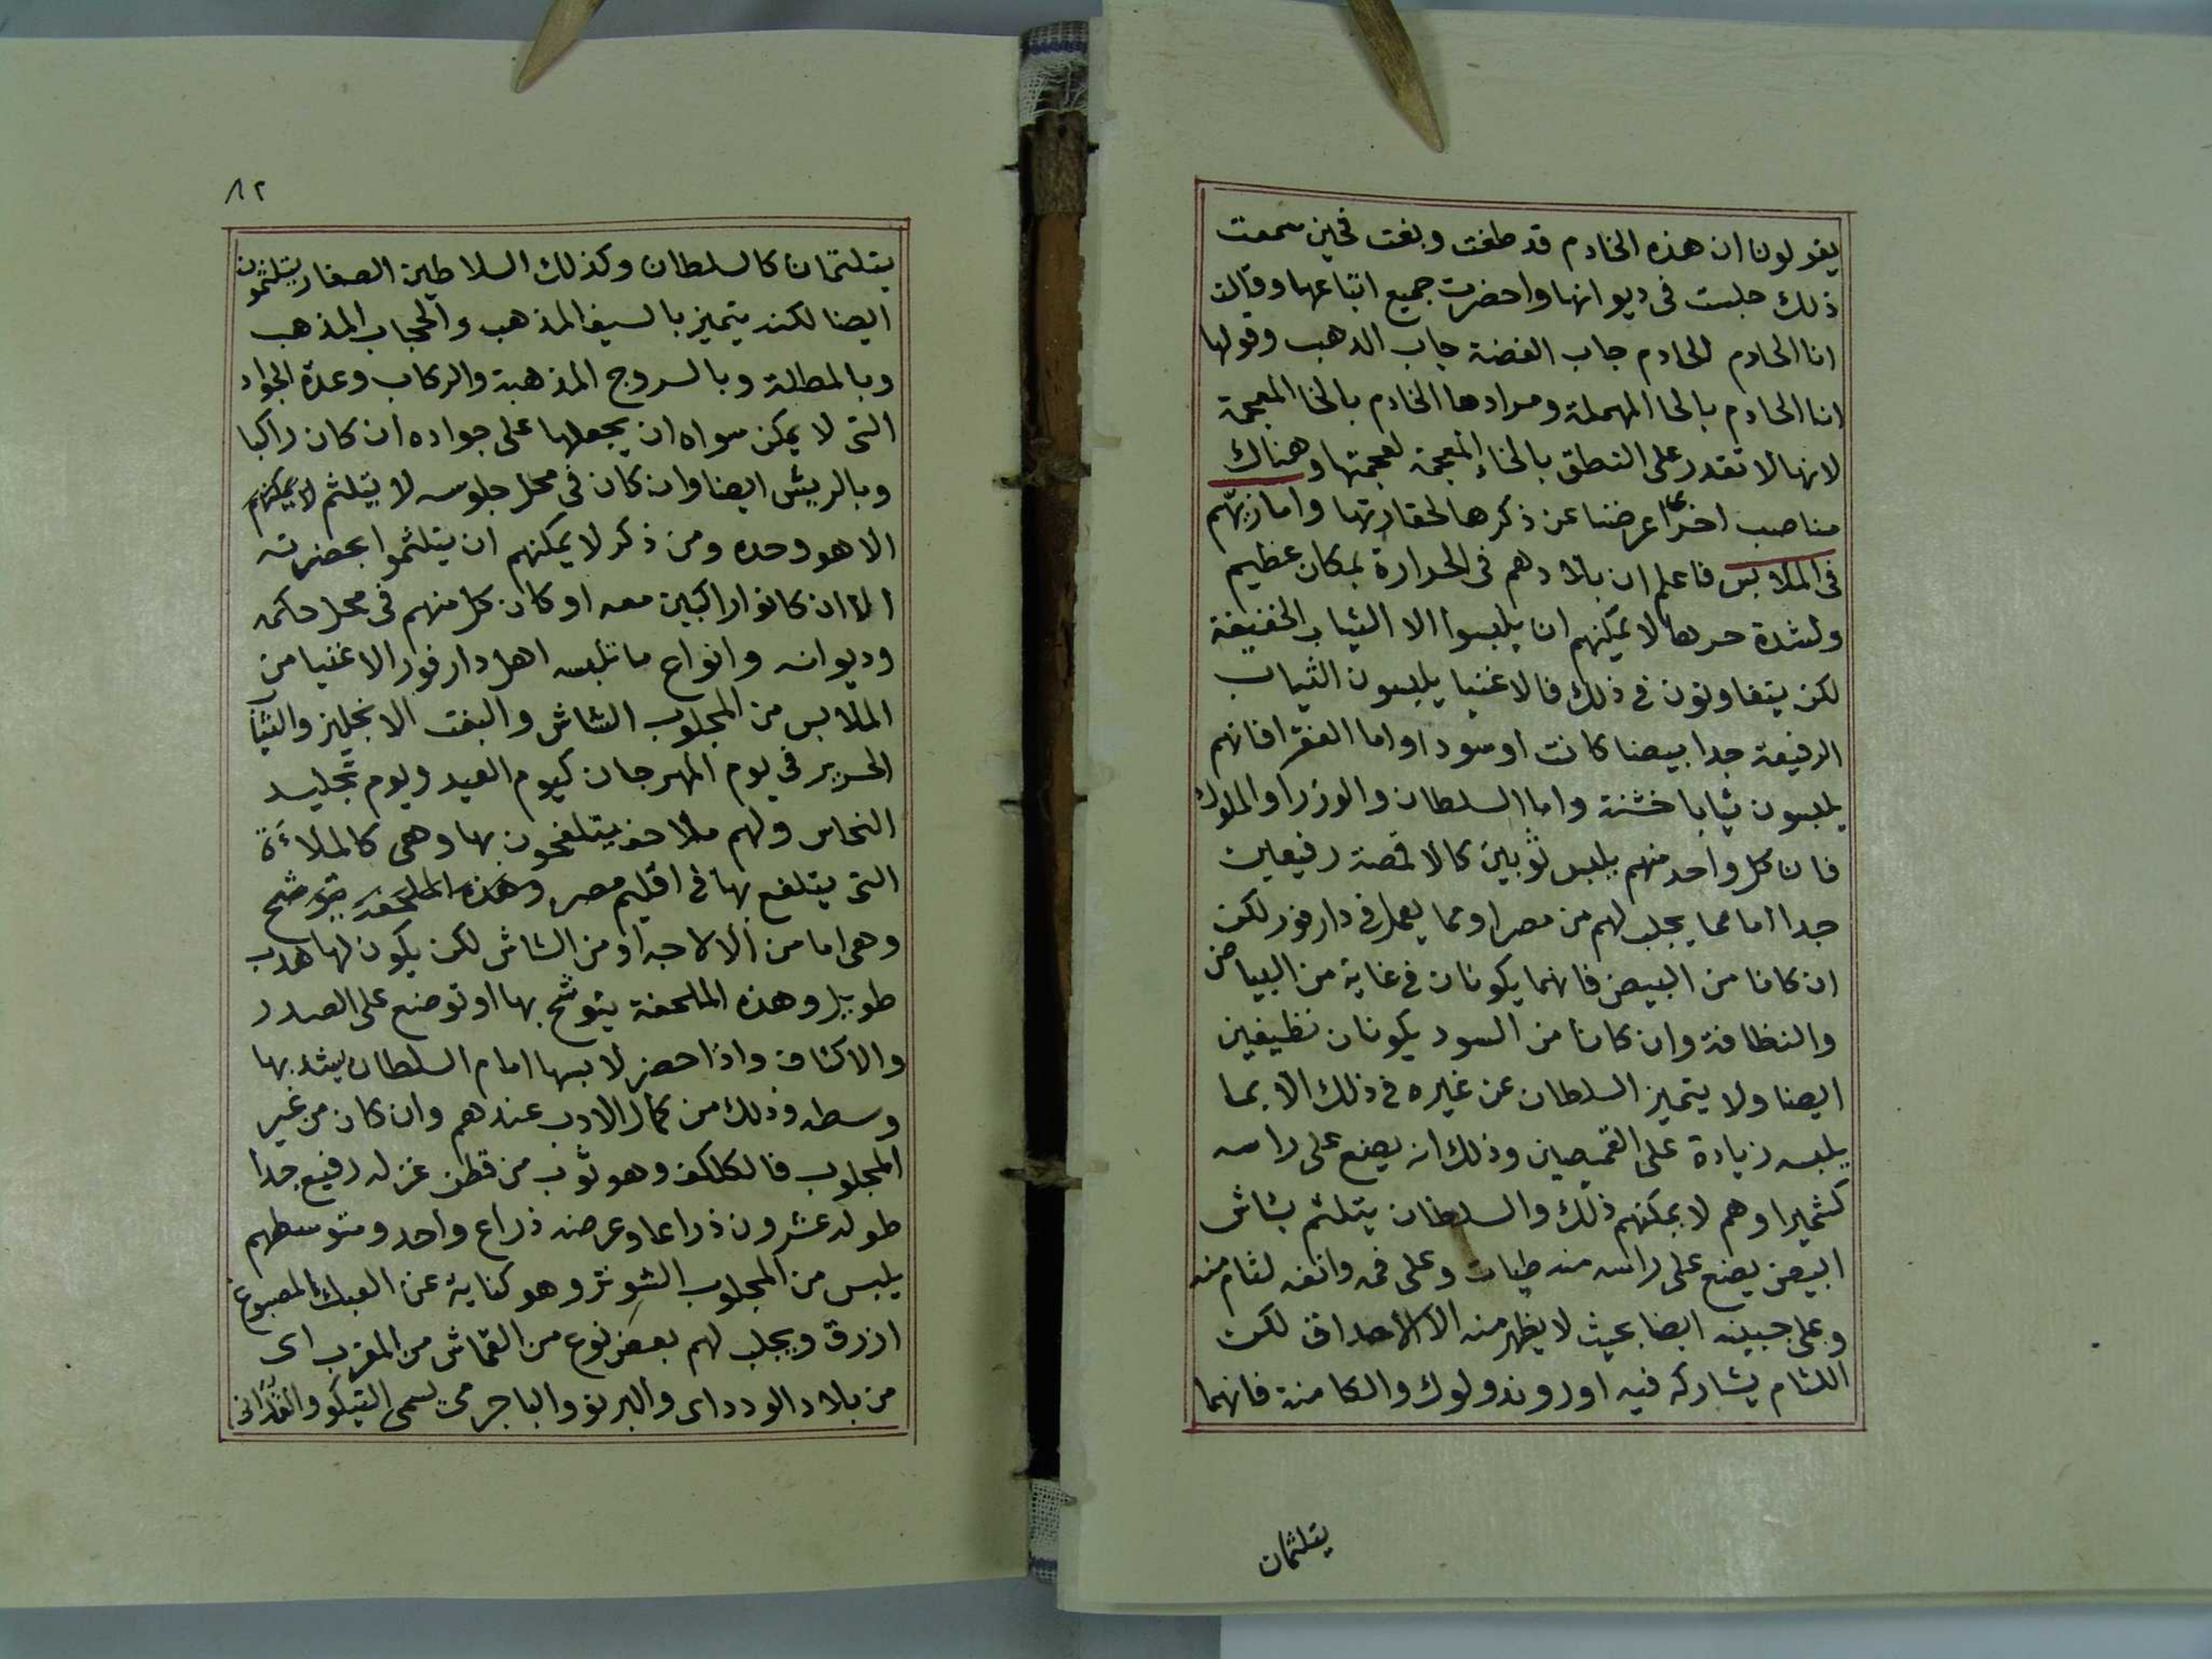 يقولون ان هذه الخادم قد طغت وبغت فحين سمعت
ذلك جلست فى ديوانها واحضرت جميع اتباعها وقالت
انا الحادم الحادم جاب الفضة جاب الدهب وقولها
انا الحادم بالحا المهملة ومرادها الخادم بالخا المعجمة
لانها لا تقدر على النطق بالخاء المعجمة لعجمتها وهناك
مناصب اخرى اعرضنا عن ذكرها لحقارتها واما زيّهم
فى الملابس فاعلم ان بلادهم فى الحرارة بمكان عظيم
ولشدة حرها لا يمكنهم ان يلبسوا الا الثياب الخفيفة
لكن يتفاوتون فى ذلك فالاغنيا يلبسون الثياب
الرفيعة جدا بيضا كانت اوسودا واما الفقرا فانهم
يلبسون ثيابا خشنة واما السلطان والوزرا والملوك
فان كل واحد منهم يلبس ثوبين كالاقمصة رفيعين
جدا اما مما يجلب لهم من مصر او مما يعمل فى دارفور لكن
ان كانا من البيض فانهما يكونان فى غاية من البياض
والنظافة وان كانا من السود يكونان نظيفين
ايضا ولا يتميز السلطان عن غيره فى ذلك الا بما
يلبسه زيادة على القميصين وذلك انه يضع على راسه
كشميرا وهم لا يمكنهم ذلك والسلطان يتلثم بشاش
ابيض يضع على راسه منه طيات وعلى فمه وانفه لثام منه
وعلى جبينه ايضا بحيث لا يظهر منه الا الاحداق لكن
اللثام يشاركه فيه اوروندولوك والكامنة فانهما
يتلثمان
٨٢
يتلثمان كالسلطان وكذلك السلاطين الصغار يتلثمون
ايضا لكنه يتميز بالسيف المذهب والحجاب المذهب
وبالمظلة وبالسروج المذهبة والركاب وعدة الجواد
التى لا يمكن سواه ان يجعلها على جواده ان كان راكبا
وبالريش ايضا وان كان فى محل جلوسه لا يتلثم لا يمكنهم
الا هو وحده ومن ذكر لا يمكنهم ان يتلثموا بحضرته
الا ان كانوا راكبين معه او كان كل منهم فى محل حكمه
وديوانه وانواع ما تلبسه اهل دارفور الاغنيا من
الملابس من المجلوب الشاش والبفت الانجليز والثياب
الحرير فى يوم المهرجان كيوم العيد ويوم تجليد
النحاس ولهم ملاحف يتلفحون بها وهى كالملاءة
التى يتلفع بها فى اقليم مصر وهذه الملحفة يتوشح
وهى اما من الالاجه او من الشاش لكن يكون لها هدب
طويل وهذه الملحفة يتوشح بها او توضع على الصدر
والاكتاف واذا حضر لابسها امام السلطان يشد بها
وسطه وذلك من كمال الادب عندهم وان كان من غير
المجلوب فالكلكف وهو ثوب من قطن غزله رفيع جدا
طوله عشرون ذراعا وعرضه ذراع واحد ومتوسطهم
يلبس من المجلوب الشوتر وهو كناية عن العبك المصبوغ
ازرق ويجلب لهم بعض نوع من القماش من المغرب اى
من بلاد الودداى والبرنو والباجرمى يسمى التيكو والقدانى